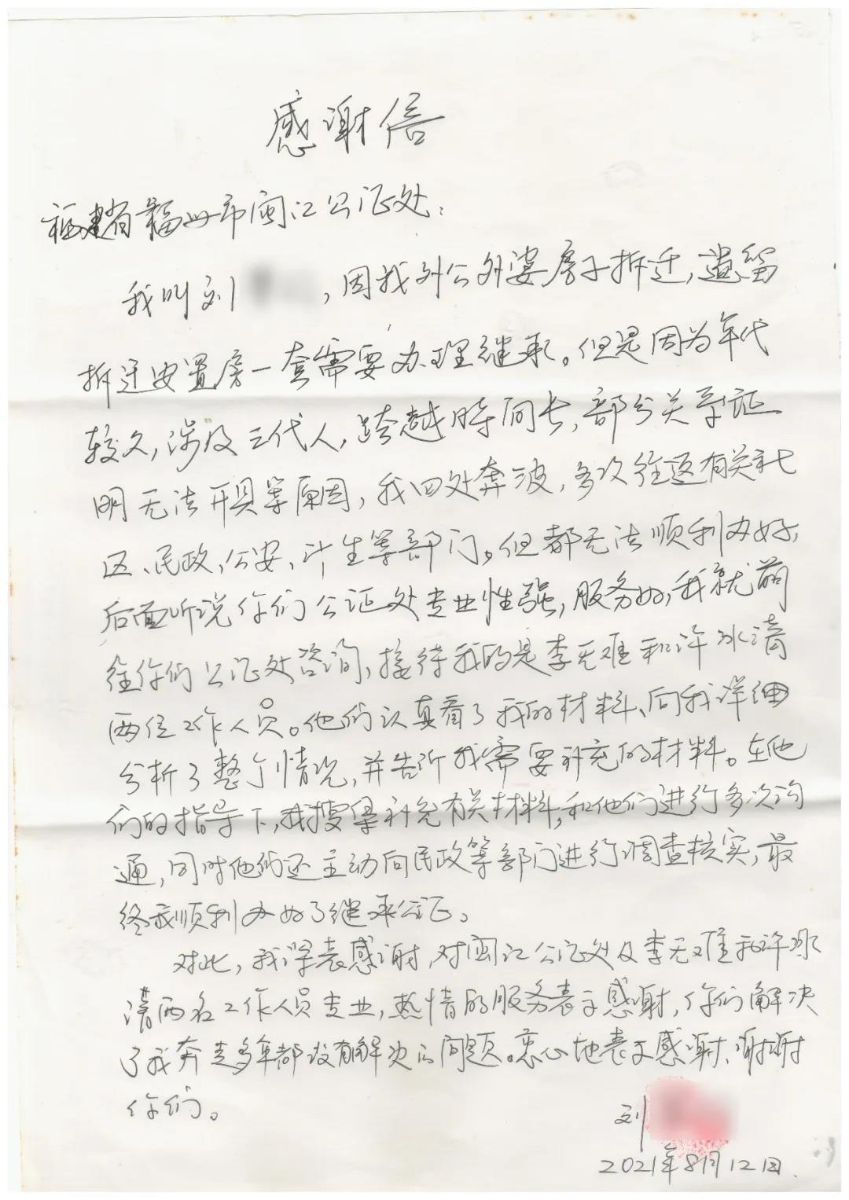 感谢信
福建省福州市闽江公证处：
我叫刘，因我外公外婆房子拆迁，遗留
拆迁安置房一套需要办理继承。但是因为年代
较久，涉及三代人，跨越时间长，部分关系证
明无法开具等原因，我四处奔波，多次往返有关社
区、民政、公安、计生等部门。但都无法顺利办好，
后面听说你们公证处专业性强，服务好，我就前
往你们公证处咨询，接待我的是李无难和许冰清
两位工作人员。他们认真看了我的材料、向我详细
分析了整个情况，并告诉我需要补充的材料。在他
们的指导下，我搜集补充有关材料，和他们进行多次沟
通，同时他们还主动向民政等部门进行调查核实，最
终我顺利办好了继承公证。
对此，我深表感谢，对闽江公证处及李无难和许冰
清两名工作人员专业，热情的服务表示感谢，你们解决
了我奔走多年都没有解决的问题。衷心地表示感谢、谢谢
你们。
刘
2021年8月12日